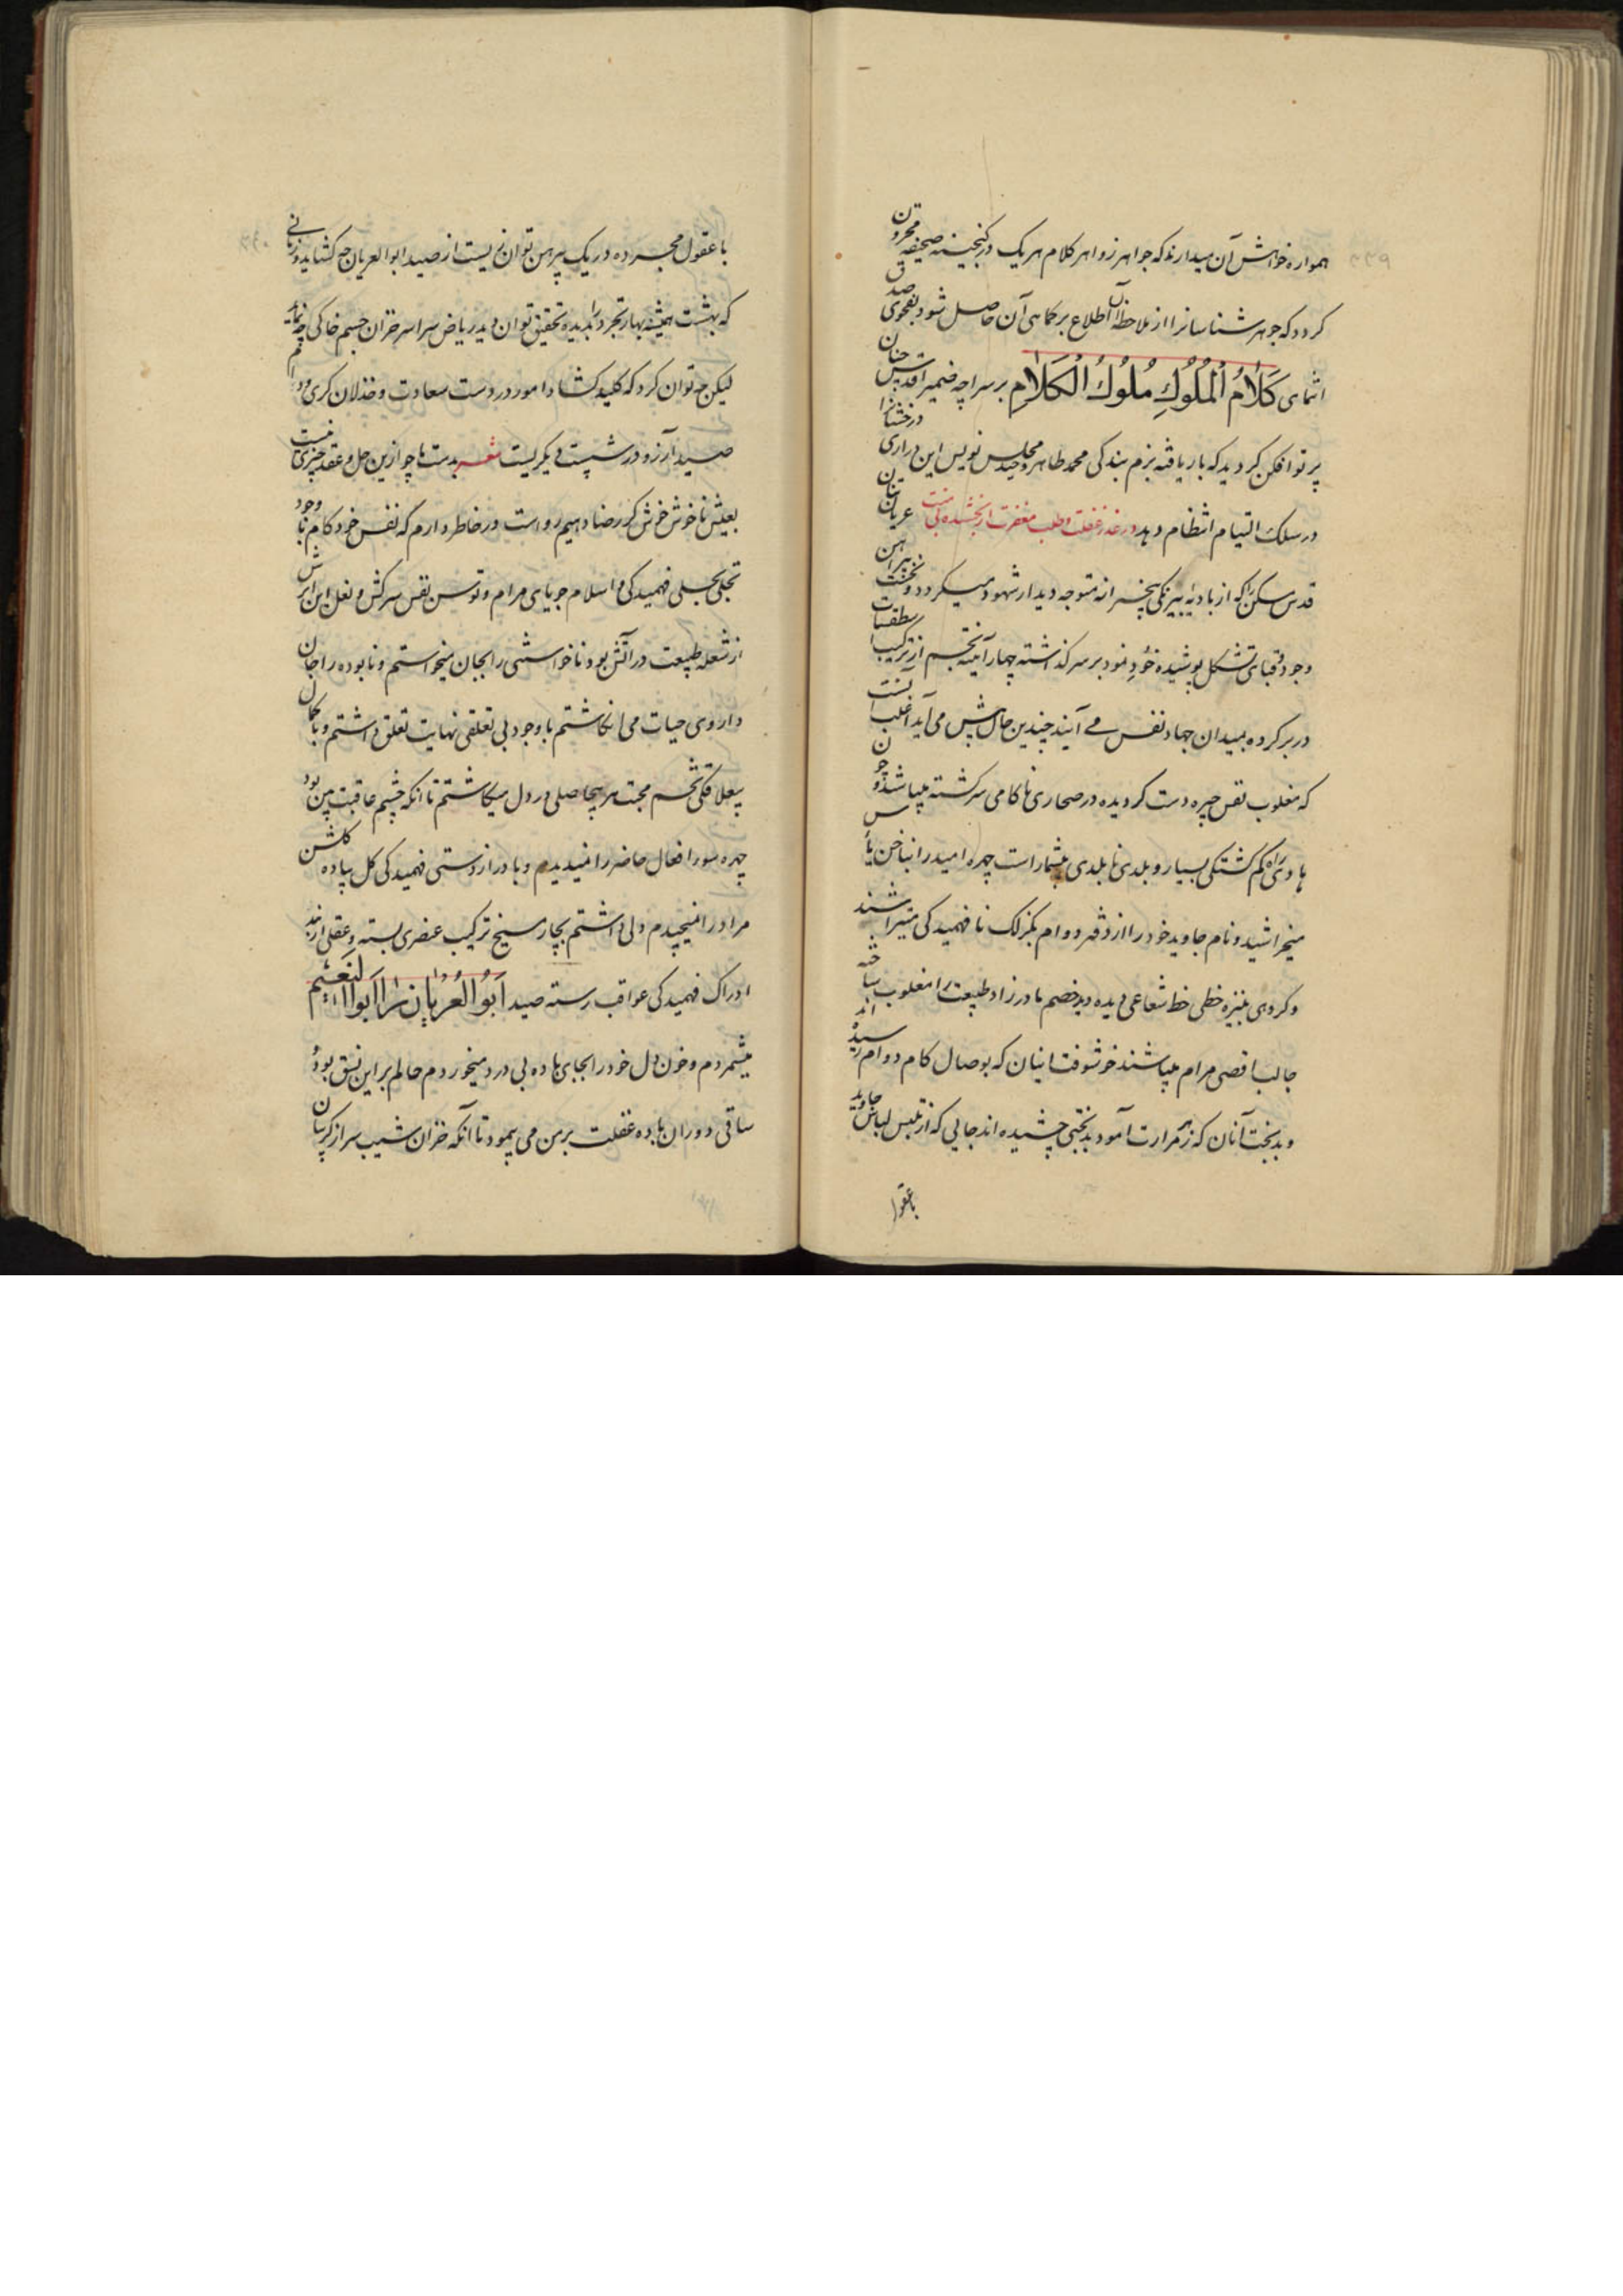 همواره خواهش آن میدارند که جواهر زواهر کلام هر یک در گنجینه صحیفه مخزون
کردد که جوهر شناسانرا از ملاحظه آن اطلاع بر کماهی آن حاصل شود بفحوای صدق
انتمای كَلَامُ الْمُلُوكِ مُلُوكُ الْكَلَامِ بر سراچه ضمیر اقدس چنان
پرتو افکن کردید که بار یافته بزم بندگی محمد طاهر وحید مجلس نویس این دراری درخشانرا
در سلک التیام انتظام دهد در عذر غفلت و طلب مغفرت از بخشنده بی منت عریان تنان
قدس مسکن را که از بادیه بیرنکی بیخبرانه متوجه دیدار شهود میکردد و نخست پیراهن
وجود قبای تشکل پوشیده خود نمود بر سر کذاشته چهار آینه تجسم از ترکیب اسطقسات
در بر کرده بمیدان جهاد نفس می آیند چندین حال پیش می آید اغلب آنست
که مغلوب نفس چیره دست کردیده در صحاری ناکامی سرکشته میباشند و چون
هادی راه کم کشتکی بسیار و بلدی نابلدی بیشمار است چهره امید را بناخن یأس
میخراشید و نام جاوید خود را از دفتر دوام بکزلک نا فهمیدکی میتراشند
و کروهی بنیزه خطی خط شعاعی دیده دید خصم مادرزاد طبیعت را مغلوب ساخته
جالب اقصی مرام میباشند خوشوقت اینان که بوصال کام دوام رسیده اند
و بدبخت آنان که زهر مرارت آمود بدبختی چشیده اند جایی که از تلبس لباس جاوید
با عقول
با عقول مجرده در یک پیرهن توان زیست از صید ابو العریان چه کشاید و زمانی
که بهشت همیشه بهار تجرد را بدیده تحقیق توان دید ریاض سراسر خزان جسم خاکی چه نماید
لیکن چه توان کرد که کلید کشاد امور در دست سعادت و خذلان کری و دام
صید آرزو در شست دیکریست شعر بدست ما چو ازین حل و عقد چیزی نیست
بعیش ناخوش خوش کر رضا دهیم رواست در خاطر دارم که نفس خود کام با وجود
تجلی بجلی فهمیدکی و اسلام جویای مرام و توسن نفس سرکش و نعل این ابرش
از شعله طبیعت در آتش بود نا خواستنی را بجان میخواستم و نابوده را جان
داروی حیات می انکاشتم با وجود بی تعلقی نهایت تعلق داشتم و با کمال
بیعلاقکی تخم محبت هر بیحاصلی در دل میکاشتم تا انکه چشم عاقبت بین بود
چهره سوء افعال حاضر را نمیدیدم و با دراز دستی فهمیدکی کل پیاده کلشن
مراد را نمیچیدم دلی داشتم بچار میخ ترکیب عنصری بسته و عقلی از بند
ادراک فهمیدکی عواقب رسته صید اَبُو الْعُرْیَان را اَبُو النَعِیم
میشمردم و خون دل خود را بجای باده بی درد میخوردم حالم بر این نسق بود و
ساقی دوران باده غفلت بر من می پیمود تا آنکه خزان شیب سر از کریبان